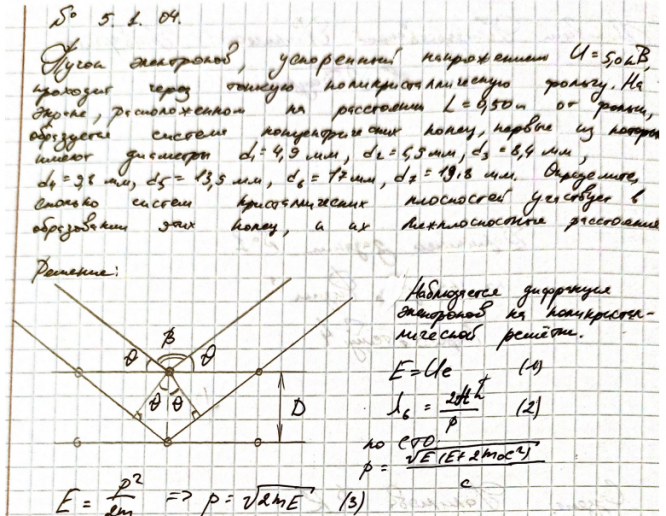 № 5.1.04.
Пучок электронов, ускоренный напряжением U = 5,0 кВ,
проходит через тонкую поликристаллическую фольгу. На
экране, расположенном на расстоянии L = 0,50 м от фольги,
образуется система концентрических колец, первые из которых
имеют диаметры d₁ = 4,9 мм, d₂ = 5,9 мм, d₃ = 8,4 мм,
d₄ = 9,8 мм, d₅ = 13,5 мм, d₆ = 17 мм, d₇ = 19,8 мм. Определите,
сколько систем кристаллических плоскостей участвует в
образовании этих колец, и их межплоскостные расстояния
Решение:
Наблюдается дифракция
электронов на поликристал-
лической решётке.
E = Ue (1)
λ_б = 2πħ / p (2)
по СТО:
p = √E(E + 2m₀c²) / c
β
θ θ
θ θ
D
E = p² / 2m => p = √2mE (3)